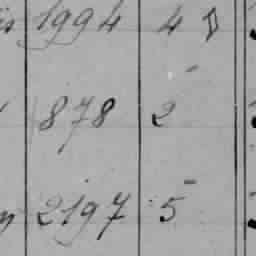 1994 4
878 2 -
2197 5 -